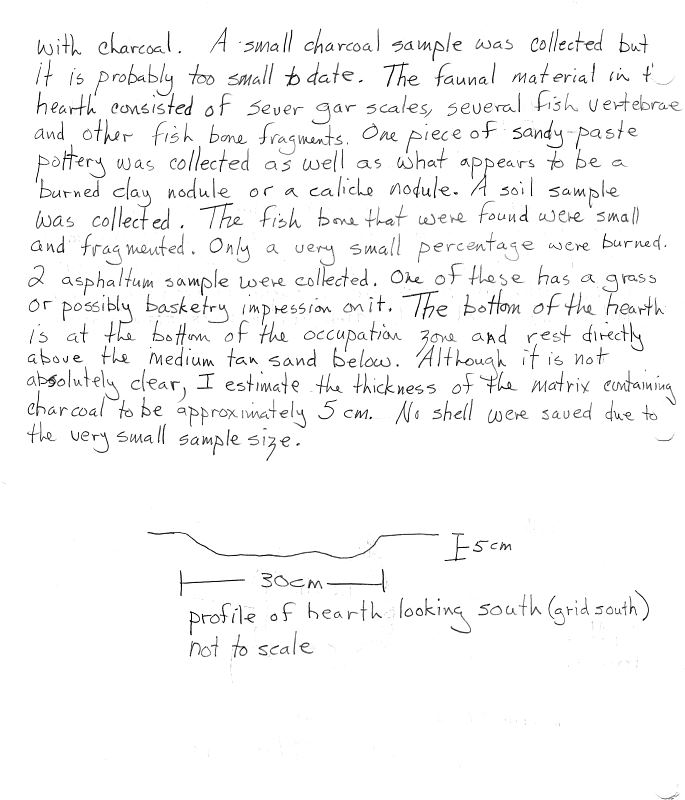 with charcoal. A small charcoal sample was collected but
it is probably too small to date. The faunal material in t
hearth consisted of sever gar scales, several fish vertebrae
and other fish bone fragments. One piece of sandy-paste
pottery was collected as well as what appears to be a
burned clay nodule or a caliche nodule. A soil sample
was collected. The fish bone that were found were small
and fragmented. Only a very small percentage were burned.
2 asphaltum sample were collected. One of these has a grass
or possibly basketry impression on it. The bottom of the hearth
is at the bottom of the occupation zone and rest directly
above the medium tan sand below. Although it is not
absolutely clear, I estimate the thickness of the matrix containing
charcoal to be approximately 5 cm. No shell were saved due to
the very small sample size.
5 cm
30cm
profile of hearth looking south (grid south)
not to scale